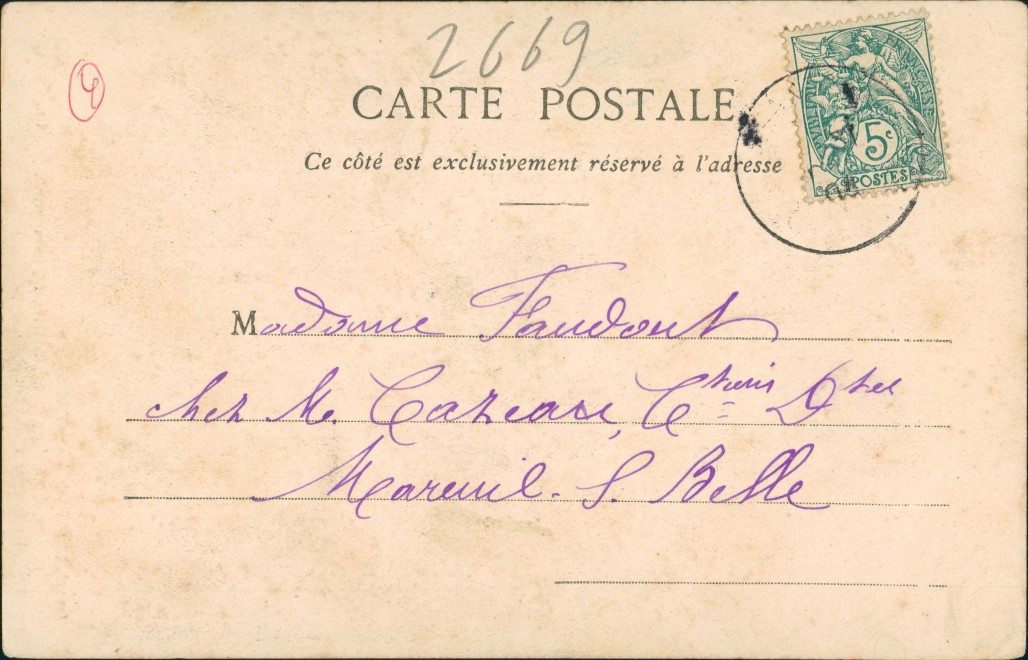 2669
CARTE POSTALE
Ce côté est exclusivement réservé à l'adresse
RÉPUBLIQUE FRANÇAISE
5c
POSTES
Madame Faudout
chez M. Cazeaux,
Mareuil. S. Belle